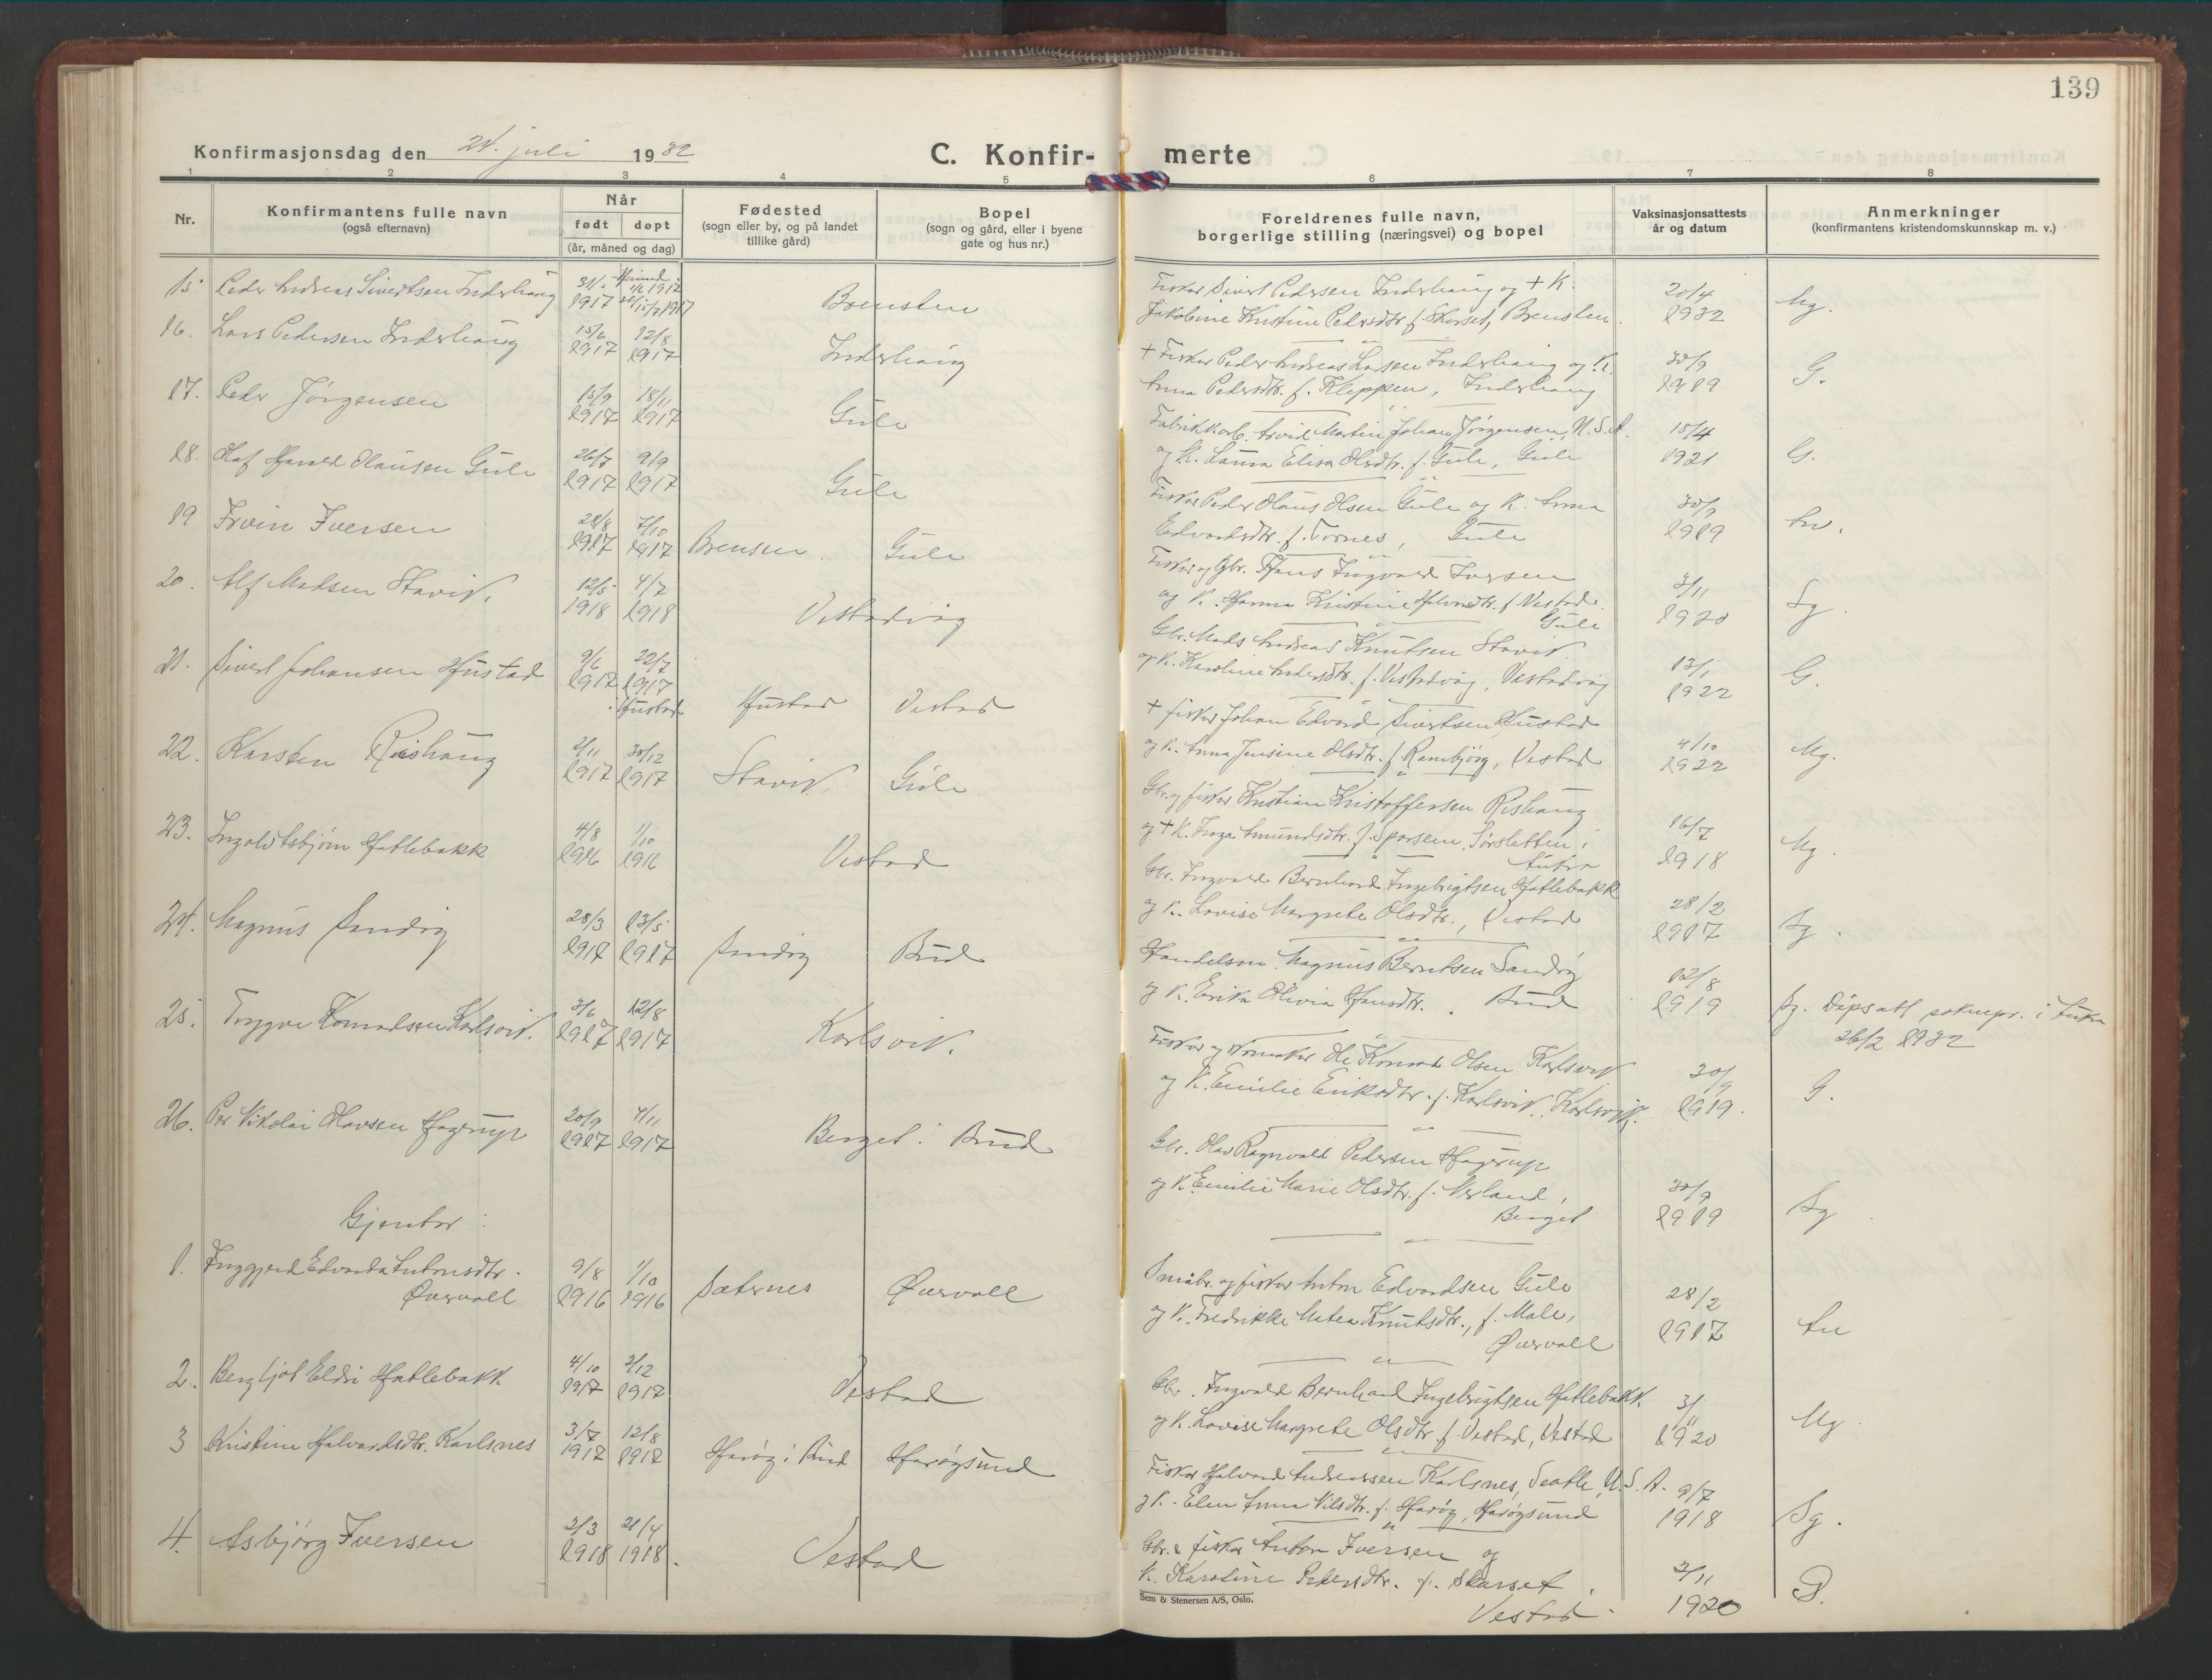 139
Konfirmasjonsdag den 24. juli 1932
C. Konfir- merte
1 2 3 4 5 6 7 8
Nr.
Konfirmantens fulle navn
(også efternavn)
Når
født døpt
(år, måned og dag)
Fødested
(sogn eller by, og på landet
tillike gård)
Bopel
(sogn og gård, eller i byene
gate og hus nr.)
Foreldrenes fulle navn,
borgerlige stilling (næringsvei) og bopel
Vaksinasjonsattests
år og datum
Anmerkninger
(konfirmantens kristendomskunnskap m. v.)
15 Peder Andreas Sivertsen Inderhaug 1917 Brensten
Fisker Sivert Pedersen Inderhaug og + K.
Jakobine Kristine Pedersdtr f. Skarset, Brensten.
20/4 1932 Mg.
16. Lars Pedersen Inderhaug 15/6 1917 12/8 1917 Inderhaug
+ Fisker Peder Andreas Larsen Inderhaug og K.
Anna Pedersdtr. f. Kleppen, Inderhaug
30/9 1919 G.
17. Peder Jørgensen 15/9 1917 18/11 1917 Gule
Fabrikkarb. Arvid Martin Johan Jørgensen, U.S.A.
og K. Laura Elisa Olsdtr. f. Gule, Gule
15/4 1921 G.
18. Olaf Harald Olausen Gule 26/7 1917 9/9 1917 Gule
Fisker Peder Olaus Olsen Gule og K. Anna
Edvardsdtr. f. Tornes, Gule
30/9 1919
19 Frøin Iversen 28/8 1917 7/10 1917 Brensten Gule
Fisker og Gbr. Hans Ingvald Iversen
og K. Hanna Kristine Halvorsdtr. f. Vestad.
Gule
3/11 1920 Sg.
20. Alf Madsen Stavik. 12/5 1918 4/7 1918 Vestadvåg
Gbr. Mads Andreas Knutsen Stavik
og K. Karoline Andersdtr. f. Vestadvåg, Vestadvåg
13/1 1922 G.
21. Sivert Johansen Hustad 9/6 1917 22/7 1917 i Hustad Hustad Vestad
+ fisker Johan Edvard Sivertsen Hustad
og K. Anna Jensine Olsdtr. f. Rambjørg, Vestad
4/10 1922 Mg.
22. Karsten Rishaug 2/11 1917 30/12 1917 Stavik Gule
Gbr. og fisker Kristian Kristoffersen Rishaug
og + K. Inga Amundsdtr. f. Sporsem, Sørsletten i
Aukra
16/7 1918 Mg.
23. Ingolv Asbjørn Hatlebakk 4/8 1916 1/10 1916 Vestad
Gbr. Ingvald Bernhard Ingebrigtsen Hatlebakk
og K. Lovise Margrete Olsdtr., Vestad
28/2 1917 Sg.
24. Magnus Sandøy 28/3 1917 13/5 1917 Sandøy Bud
Handelsm. Magnus Berntsen Sandøy
og K. Erika Olivia Hansdtr. Bud
12/8 1919 Sg. Dåpsatt. soknepr. i Aukra
26/2 1932
25. Trygve Konradsen Karlsvik. 3/6 1917 12/8 1917 Karlsvik.
Fisker og skomaker Ole Konrad Olsen Karlsvik
og K. Emilie Eriksdtr. f. Karlsvik, Karlsvik.
30/9 1919. G.
26. Per Nikolai Olavsen Hagerup 20/9 1917 4/11 1917 Berget i Bud
Gbr. Olav Ragnvald Pedersen Hagerup
og K Emilie Marie Olsdtr. f. Nerland,
Berget
30/9 1919 Sg
Gjenter:
1. Inggjerd Edvarda Antonsdtr.
Øvervoll 9/8 1916 1/10 1916 Sæternes Øvervoll
Småbr. og fisker Anton Edvardsen Gule
og K. Fredrikke Matea Knutsdtr., f. Male,
Øvervoll
28/2 1917
2. Bergljot Eldri Hatlebakk 4/10 1917 2/12 1917 Vestad
Gbr. Ingvald Bernhard Ingebrigtsen Hatlebakk.
og K. Lovise Margrete Olsdtr. f. Vestad, Vestad
3/11 1920 Mg
3 Kristine Halvardsdtr. Karlsnes 3/7 1917 12/8 1917 Harøy i Bud Harøysund
Fisker Halvard Andreassen Karlsnes, Seatle, U.S.A.
og K. Elen Anna Nilsdtr. f. Harøy, Harøysund
9/7 1918 Sg.
4. Asbjørg Iversen 2/3 1918 21/4 1918. Vestad
Gbr. & fisker Anton Iversen og
K. Karoline Pedersdtr. f. Skarset,
Vestad.
2/11 1920 G.
Sem & Stenersen A/S, Oslo.